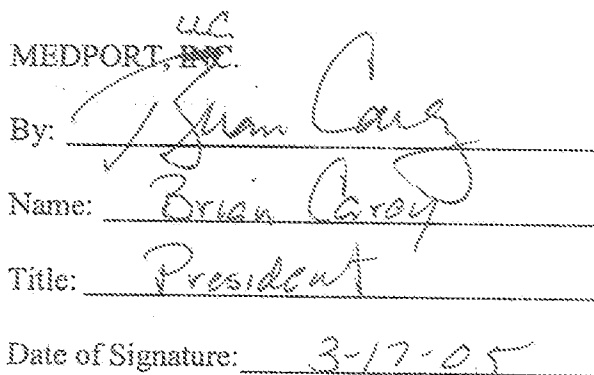 LLC
MEDPORT, INC.
By: Brian Carey
Name: Brian Carey
Title: President
Date of Signature: 3-17-05